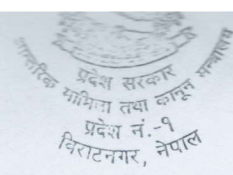 प्रदेश सरकार
आन्तरिक मामिला तथा कानून मन्त्रालय
प्रदेश नं.-१
विराटनगर, नेपाल